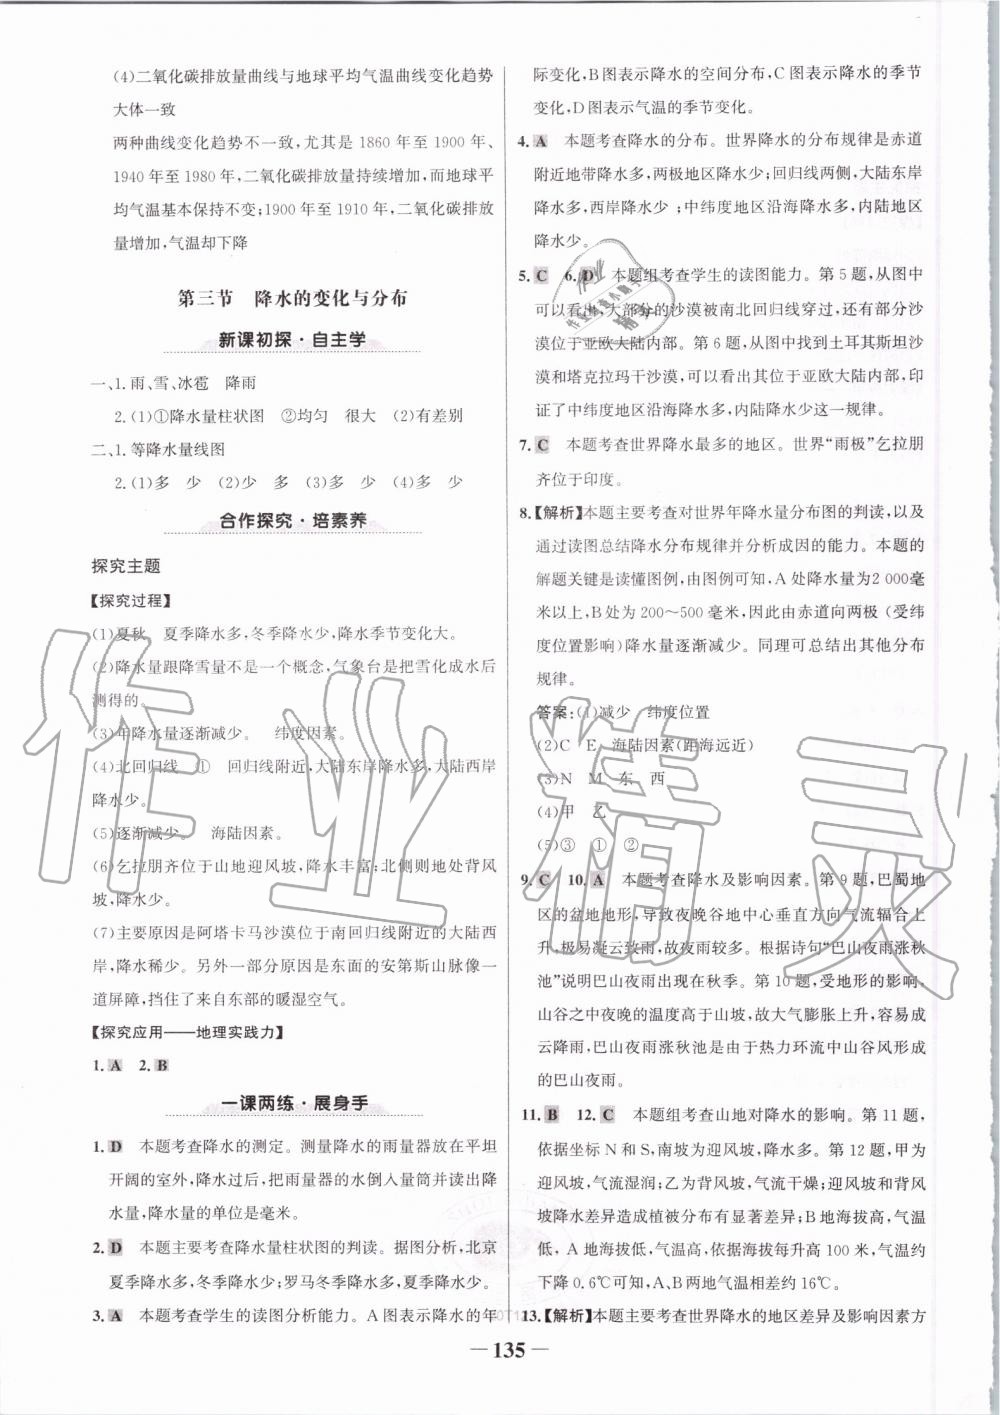 (4)二氧化碳排放量曲线与地球平均气温曲线变化趋势
大体一致
两种曲线变化趋势不一致,尤其是 1860 年至 1900 年、
1940 年至 1980 年,二氧化碳排放量持续增加,而地球平
均气温基本保持不变;1900 年至 1910 年,二氧化碳排放
量增加,气温却下降
第三节 降水的变化与分布
新课初探·自主学
一、1.雨、雪、冰雹 降雨
2.(1)①降水量柱状图 ②均匀 很大 (2)有差别
二、1.等降水量线图
2.(1)多 少 (2)少 多 (3)多 少 (4)多 少
合作探究·培素养
探究主题
【探究过程】
(1)夏秋 夏季降水多,冬季降水少,降水季节变化大。
(2)降水量跟降雪量不是一个概念,气象台是把雪化成水后
测得的。
(3)年降水量逐渐减少。 纬度因素。
(4)北回归线 ① 回归线附近,大陆东岸降水多,大陆西岸
降水少。
(5)逐渐减少。 海陆因素。
(6)乞拉朋齐位于山地迎风坡,降水丰富;北侧则地处背风
坡,降水少。
(7)主要原因是阿塔卡马沙漠位于南回归线附近的大陆西
岸,降水稀少。另外一部分原因是东面的安第斯山脉像一
道屏障,挡住了来自东部的暖湿空气。
【探究应用——地理实践力】
1. A 2. B
一课两练·展身手
1. D 本题考查降水的测定。测量降水的雨量器放在平坦
开阔的室外,降水过后,把雨量器的水倒入量筒并读出降
水量,降水量的单位是毫米。
2. D 本题主要考查降水量柱状图的判读。据图分析,北京
夏季降水多,冬季降水少;罗马冬季降水多,夏季降水少。
3. A 本题考查学生的读图分析能力。A 图表示降水的年
际变化,B 图表示降水的空间分布,C 图表示降水的季节
变化,D 图表示气温的季节变化。
4. A 本题考查降水的分布。世界降水的分布规律是赤道
附近地带降水多,两极地区降水少;回归线两侧,大陆东岸
降水多,西岸降水少;中纬度地区沿海降水多,内陆地区
降水少。
5. C 6. D 本题组考查学生的读图能力。第 5 题,从图中
可以看出,大部分的沙漠被南北回归线穿过,还有部分沙
漠位于亚欧大陆内部。第 6 题,从图中找到土耳其斯坦沙
漠和塔克拉玛干沙漠,可以看出其位于亚欧大陆内部,印
证了中纬度地区沿海降水多,内陆降水少这一规律。
7. C 本题考查世界降水最多的地区。世界“雨极”乞拉朋
齐位于印度。
8.【解析】本题主要考查对世界年降水量分布图的判读,以及
通过读图总结降水分布规律并分析成因的能力。本题的
解题关键是读懂图例,由图例可知,A 处降水量为2 000毫
米以上,B处为 200～500 毫米,因此由赤道向两极(受纬
度位置影响)降水量逐渐减少。同理可总结出其余分布
规律。
答案:(1)减少 纬度位置
(2)C E 海陆因素(距海远近)
(3)N M 东 西
(4)甲 乙
(5)③ ① ②
9. C 10. A 本题考查降水及影响因素。第 9 题,巴蜀地
区的盆地地形,导致夜晚谷地中心垂直方向气流辐合上
升,极易凝云致雨,故夜雨较多。根据诗句“巴山夜雨涨秋
池”说明巴山夜雨出现在秋季。第 10 题,受地形的影响,
山谷之中夜晚的温度高于山坡,故大气膨胀上升,容易成
云降雨,巴山夜雨涨秋池是由于热力环流中山谷风形成
的巴山夜雨。
11. B 12. C 本题组考查山地对降水的影响。第 11 题,
依据坐标 N 和 S,南坡为迎风坡,降水多。第 12 题,甲为
迎风坡,气流湿润;乙为背风坡,气流干燥;迎风坡和背风
坡降水差异造成植被分布有差异;B 地海拔高,气温
低,A 地海拔低,气温高,海拔每升高 100 米,气温约
下降 0.6℃可知,A、B 两地气温相差约 16℃。
13.【解析】本题主要考查世界降水的地区差异及影响因素方
— 135 —
作业精灵